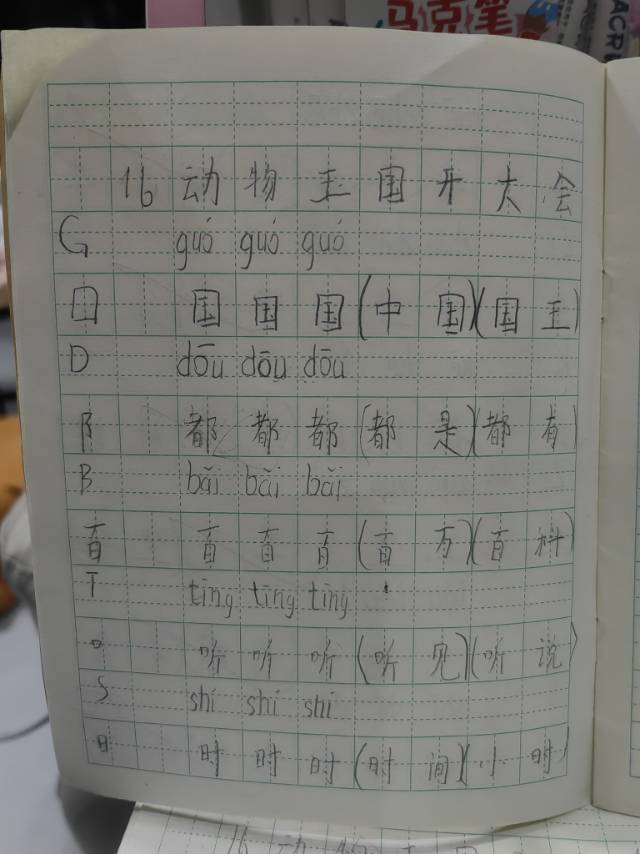 马克笔
ACR
16 动物王国开大会
G guó guó guó
囗 国国国(中国)(国王)
D dōu dōu dōu
阝 都都都(都是)(都有)
B bǎi bǎi bǎi
百 百百百(百万)(百科)
T tīng tīng tīng
口 听听听(听见)(听说)
S shí shí shí
日 时时时(时间)(小时)
16 动物王国